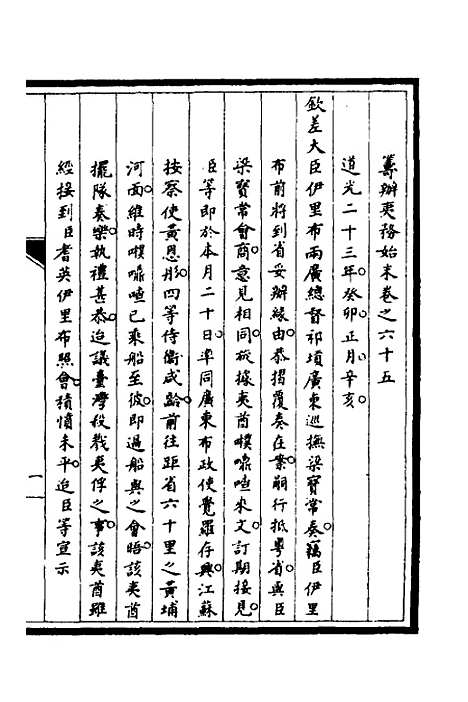 籌辦夷務始末卷之六十五
道光二十三年。癸卯。正月。辛亥。
欽差大臣伊里布兩廣總督祁𡎴廣東巡撫梁寶常奏。竊臣伊里
布前將到省妥辦緣由。恭摺覆奏在案。嗣行抵粵省。與臣
梁寶常會商。意見相同。旋據夷酋㗻嘣喳來文。訂期接見。
臣等即於本月二十日。率同廣東布政使覺羅存興。江蘇
按察使黃恩彤。四等侍衛咸齡。前往距省六十里之黃埔
河面。維時㗻嘣喳已乘船至彼。即過船與之會晤。該夷酋
擺隊奏樂。執禮甚恭。迨議臺灣殺戮夷俘之事。該夷酋雖
經接到臣耆英伊里布照會。積憤未平。迨臣等宣示
一